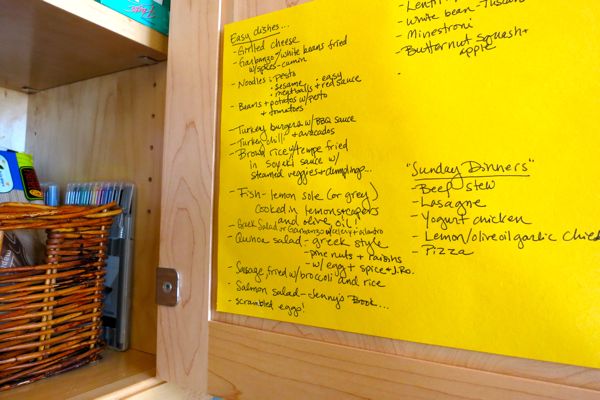 Easy dishes...
- Grilled cheese
- Garbanzo + white beans fried
w/spices - cumin
- Noodles: pesto
: sesame
: easy
meatballs + red sauce
- Beans + potatoes w/pesto
+ tomatoes
- Turkey burgers w/BBQ sauce
- Turkey chilli + avocados
- Brown rice w/tempe fried
in Soyaki sauce w/
steamed veggies + dumplings...
- Fish - lemon sole (or grey)
cooked in lemons + capers
and olive oil!
- Greek Salad or Garbanzo w/celery + cilantro
- Quinoa salad - greek style
- pine nuts + raisins
- w/ egg + spice + J.Ro.
- Sausage fried w/broccoli and rice
- Salmon salad - Jenny's Book...
- scrambled eggs!
- Lentil
- White bean - Tuscan
- Minestroni
- Butternut Squash +
apple
-
"Sunday Dinners"
- Beef stew
- Lasagne
- Yogurt chicken
- Lemon/olive oil garlic chick
- Pizza